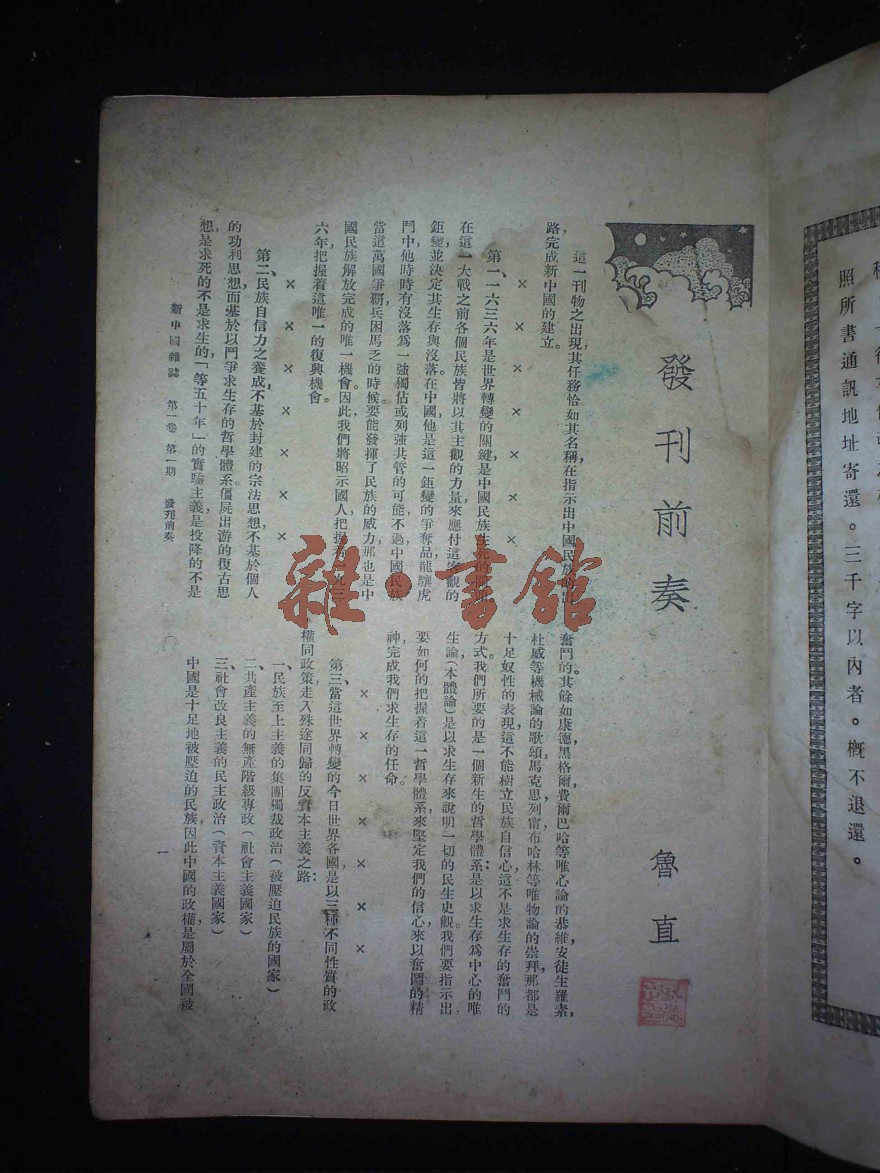 照所書通訊地址寄還。三千字以內者。概不退還。
發刊前奏
魯直
這一刊物之出現,其任務恰如其名稱在指示出中國民族的出
路,完成新中國的建立。
× × × × ×
第一、一六三六年是世界轉變的關鍵,是中國民族生死的
在這一大戰之前各個民族皆將以其主觀的力量來應付這客觀的
鉅變,並決定其生存與沒落。在中國,他是這一鉅變的爭奪品,龍驤虎
鬥中他時時有沒落為一強獨佔或列強共管的可能,不過中國民族
當這萬國爭霸,兵困馬乏的時候,要能發揮了民族的威力,那也是中
國民族解放完成的唯一機會。因此,我們將昭示國人,把握着一九三
六年把握着這唯一的復興機會。
× × × × ×
第二、民族自信力之養成,不基於封建的宗法思想,不基於個人
的功利思想,而基於以鬥爭求生存的哲學體系。僵屍出游的復古思
想,是求死的不是求生的,「等五十年」的實驗主義,是投降的不是
奮鬥的。其餘如康德黑格爾費爾巴哈等唯心論的恭維,安徒生羅素,
杜威等機械論的歌頌,馬克思列甯布哈林等唯物論的崇拜,那都是
十足奴性的表現,這不能樹立民族自信心,這不是求生存的奮鬥的
方式。我們所要的是一個新生的哲學體系,是以求生存為中心的唯
生論(本體論)是以求生存來說明一切的民生史觀。我們要指示出
要如何的把握着這一哲學體系,來堅定我們的信心,來以奮鬥的精
神,完成我們求生存的任命。
× × × × × ×
第三、當這世界轉變的今日,世界各國,是以三種不同性質的政
權,同政策走入殊途同歸的反資本主義之路:
一、民族至上主義的集團獨裁政治(被壓迫民族的國家)
二、共產主義的無產階級專政(社會主義國家)
三、社會改良主義的民主政治(資本主義國家)
中國是十足地被壓迫的民族,因此中國的政權,是屬於全國被
新中國雜誌 第一卷 第一期 發刊前奏
一
雜·書館